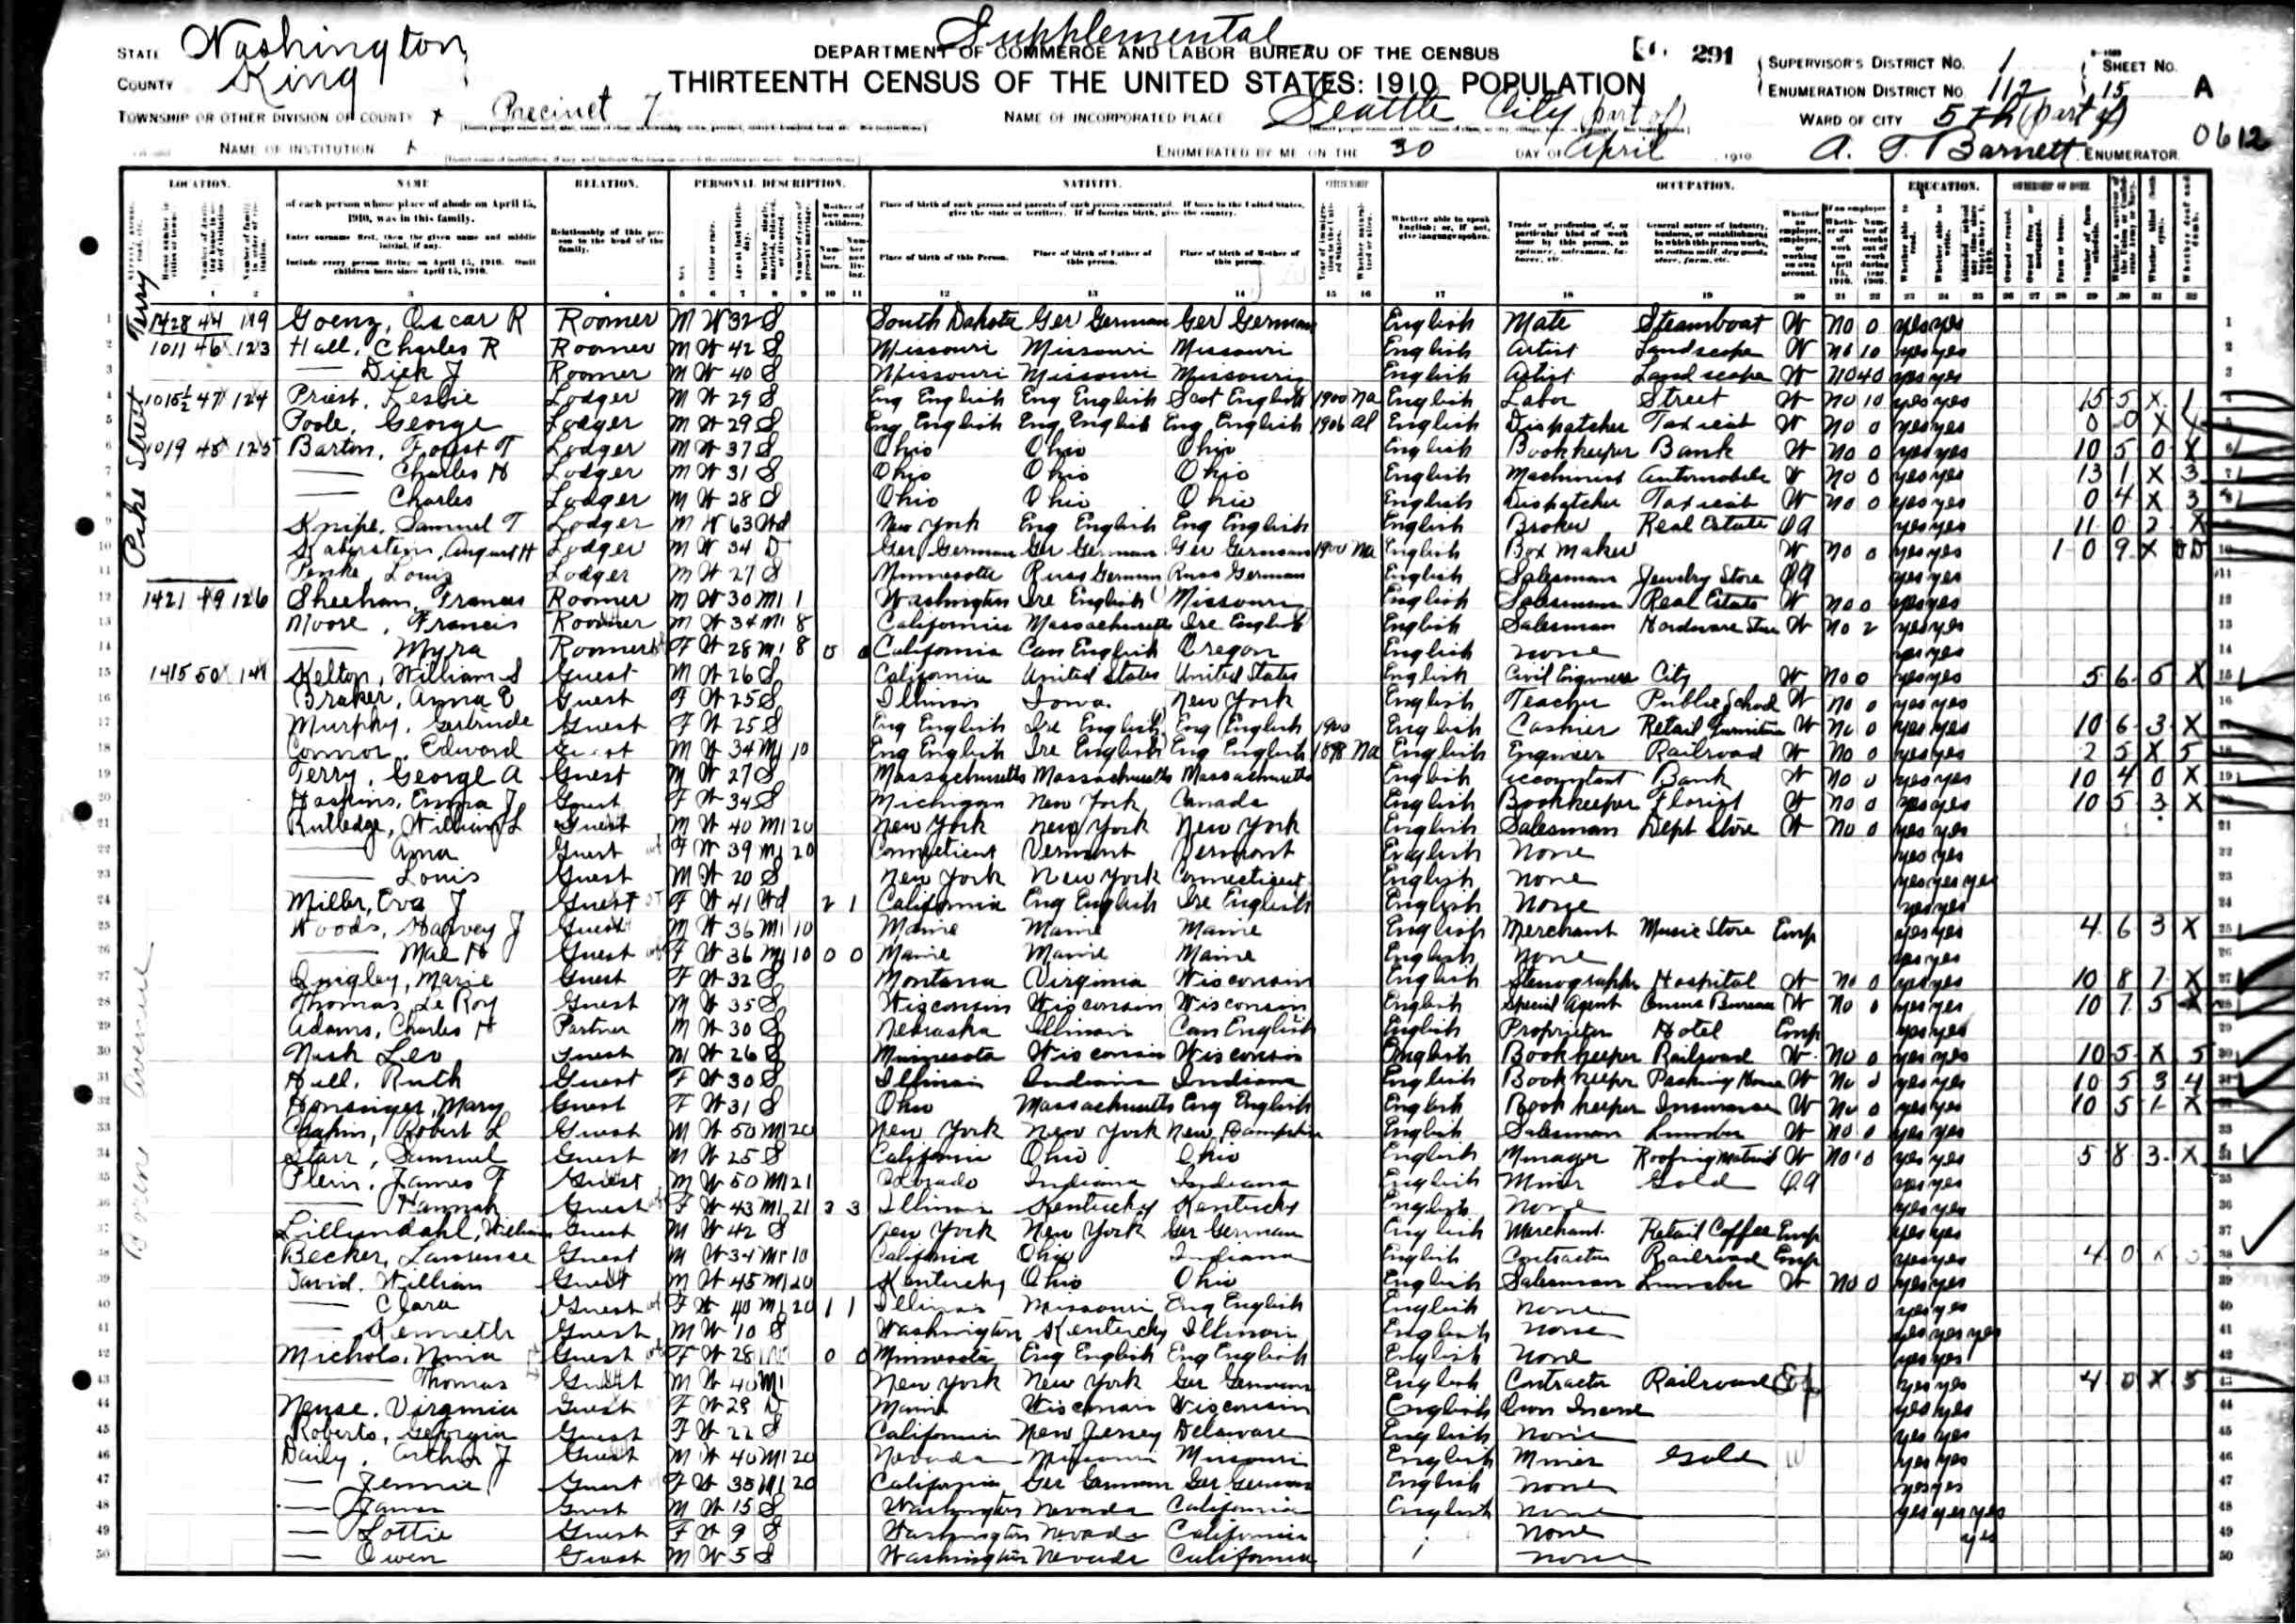 Supplemental
STATE Washington
DEPARTMENT OF COMMERCE AND LABOR BUREAU OF THE CENSUS
291
COUNTY King
THIRTEENTH CENSUS OF THE UNITED STATES: 1910 POPULATION
SUPERVISOR'S DISTRICT No. 1
SHEET No. 15 A
ENUMERATION DISTRICT No. 112
TOWNSHIP OR OTHER DIVISION OF COUNTY Precinct 7
NAME OF INCORPORATED PLACE Seattle City (part of)
WARD OF CITY 5th (part of)
0612
NAME OF INSTITUTION X
ENUMERATED BY ME ON THE 30 DAY OF April, 1910
A. T. Barnett, ENUMERATOR.
LOCATION. NAME RELATION. PERSONAL DESCRIPTION. NATIVITY. CITIZENSHIP OCCUPATION. EDUCATION. OWNERSHIP OF HOME.
of each person whose place of abode on April 15, 1910, was in this family.
Enter surname first, then the given name and middle initial, if any.
Include every person living on April 15, 1910. Omit children born since April 15, 1910.
Relationship of this person to the head of the family.
Place of birth of each person and parents of each person enumerated. If born in the United States, give the state or territory. If of foreign birth, give the country.
Place of birth of this Person. Place of birth of Father of this person. Place of birth of Mother of this person.
Whether able to speak English; or, if not, give language spoken.
1 2 3 4 5 6 7 8 9 10 11 12 13 14 15 16 17 18 19 20 21 22 23 24 25 26 27 28 29 30 31 32
Terry
Pike Street
Boren Avenue
1 1428 44 119 Oscar R Roomer M W 32 S South Dakota Ger German Ger German English Mate Steamboat W No 0 yes yes
2 1011 46 123 Hall, Charles R Roomer M W 42 S Missouri Missouri Missouri English Artist Landscape W No 10 yes yes
3 Dick J Roomer M W 40 S Missouri Missouri Missouri English Artist Landscape W No 40 yes yes
4 1015½ 47 124 Priest, Leslie Lodger M W 29 S Eng English Eng English Scot English 1900 Na English Labor Street W No 10 yes yes 15 5 X 1
5 Poole, George Lodger M W 29 S Eng English Eng English Eng English 1906 Al English Dispatcher Taxicab W No 0 yes yes
6 1019 48 125 Barton, Forest T Lodger M W 37 S Ohio Ohio Ohio English Bookkeeper Bank W No 0 yes yes 10 5 0 X
7 Charles H Lodger M W 31 S Ohio Ohio Ohio English Machinist Automobile W No 0 yes yes 13 1 X 3
8 Charles Lodger M W 28 S Ohio Ohio Ohio English Dispatcher Taxicab W No 0 yes yes 0 4 X 3
9 Knipe, Samuel T Lodger M W 63 Wd New York Eng English Eng English English Broker Real Estate OA yes yes 11 0 2 X
10 August H Lodger M W 34 D Ger German Ger German Ger German 1900 Na English Box Maker W No 0 yes yes 1 0 9 X
11 Penke, Louis Lodger M W 27 S Minnesota Russ German Russ German English Salesman Jewelry Store OA yes yes
12 1421 49 126 Sheehan, Francis Roomer M W 30 M1 1 Washington Ire English Missouri English Salesman Real Estate W No 0 yes yes
13 Moore, Francis Roomer M W 34 M1 8 California Massachusetts Ire English English Salesman Hardware Store W No 2 yes yes
14 Myra Roomer F W 28 M1 8 0 0 California Can English Oregon English None yes yes
15 1415 50 Kelton, William S Guest M W 26 S California United States United States English Civil Engineer City W No 0 yes yes 5 6 5 X
16 Braker, Anna E Guest F W 25 S Illinois Iowa New York English Teacher Public School W No 0 yes yes
17 Murphy, Gertrude Guest F W 25 S Eng English Ire English Eng English 1900 English Cashier Retail Furniture W No 0 yes yes 10 6 3 X
18 Connor, Edward Guest M W 34 M1 10 Eng English Ire English Eng English 1898 Na English Engineer Railroad W No 0 yes yes 2 5 X 5
19 Terry, George A Guest M W 27 S Massachusetts Massachusetts Massachusetts English Accountant Bank W No 0 yes yes 10 4 0 X
20 Haskins, Emma J Guest F W 34 S Michigan New York Canada English Bookkeeper Florist W No 0 yes yes 10 5 3 X
21 Rutledge, William L Guest M W 40 M1 20 New York New York New York English Salesman Dept Store W No 0 yes yes
22 Anna Guest F W 39 M1 20 Connecticut Vermont Vermont English None yes yes
23 Louis Guest M W 20 S New York New York Connecticut English None yes yes yes
24 Miller, Eva J Guest F W 41 Wd 2 1 California Eng English Ire English English None yes yes
25 Woods, Harvey J Guest M W 36 M1 10 Maine Maine Maine English Merchant Music Store Emp yes yes 4 6 3 X
26 Mae H Guest F W 36 M1 10 0 0 Maine Maine Maine English None yes yes
27 Quigley, Marie Guest F W 32 S Montana Virginia Wisconsin English Stenographer Hospital W No 0 yes yes 10 8 7 X
28 Thomas, Le Roy Guest M W 35 S Wisconsin Wisconsin Wisconsin English Special Agent Census Bureau W No 0 yes yes 10 7 5 X
29 Adams, Charles H Partner M W 30 S Nebraska Illinois Can English English Proprietor Hotel Emp yes yes
30 Nash Leo Guest M W 26 S Minnesota Wisconsin Wisconsin English Bookkeeper Railroad W No 0 yes yes 10 5 X 5
31 Hull, Ruth Guest F W 30 S Illinois Indiana Indiana English Bookkeeper Packing House W No 0 yes yes 10 5 3 4
32 Honsinger, Mary Guest F W 31 S Ohio Massachusetts Eng English English Bookkeeper Insurance W No 0 yes yes 10 5 1 X
33 Robert L Guest M W 50 M1 20 New York New York New Hampshire English Salesman Lumber W No 0 yes yes
34 Starr, Samuel Guest M W 25 S California Ohio Ohio English Manager Roofing Material W No 0 yes yes 5 8 3 X
35 Plein, James F Guest M W 50 M1 21 Colorado Indiana Indiana English Miner Gold OA yes yes
36 Hannah Guest F W 43 M1 21 3 3 Illinois Kentucky Kentucky English None yes yes
37 Lillundahl, William Guest M W 42 S New York New York Ger German English Merchant Retail Coffee Emp yes yes
38 Becker, Lawrence Guest M W 34 M1 10 California Ohio Indiana English Contractor Railroad Emp yes yes 4 0 X
39 David, William Guest M W 45 M1 20 Kentucky Ohio Ohio English Salesman Lumber W No 0 yes yes
40 Clara Guest F W 40 M1 20 1 1 Illinois Missouri Eng English English None yes yes
41 Kenneth Guest M W 10 S Washington Kentucky Illinois English None yes yes yes
42 Michols, Nina Guest F W 28 0 0 Minnesota Eng English Eng English English None yes yes
43 Thomas Guest M W 40 M1 New York New York Ger German English Contractor Railroad yes yes 4 0 X 5
44 Virginia Guest F W 28 D Maine Wisconsin Wisconsin English Own Income yes yes
45 Roberts, Georgia Guest F W 22 S California New Jersey Delaware English None yes yes
46 Daily, Arthur J Guest M W 40 M1 20 Nevada Missouri Missouri English Miner Gold W yes yes
47 Jennie Guest F W 35 M1 20 California Ger German Ger German English None yes yes
48 James Guest M W 15 S Washington Nevada California English None yes yes yes
49 Lottie Guest F W 9 S Washington Nevada California None yes
50 Owen Guest M W 5 S Washington Nevada California None